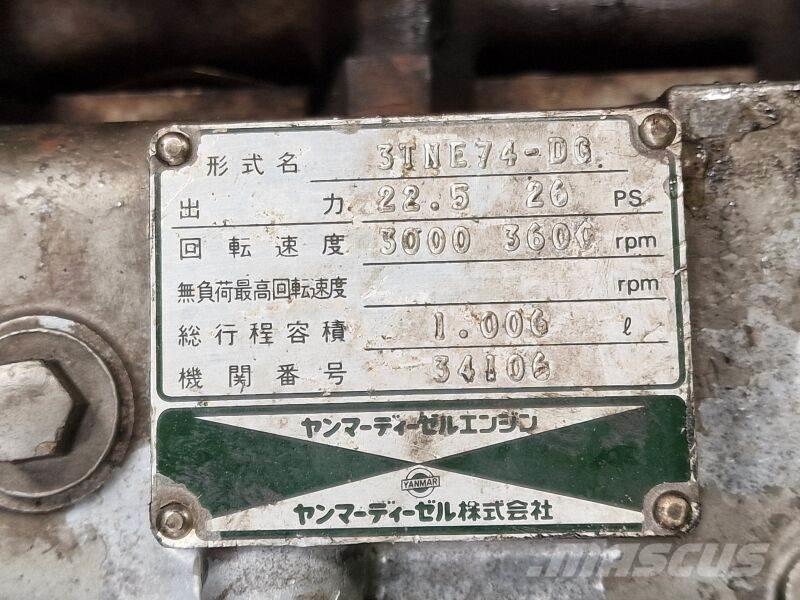 形式名 3TNE74-DG
出力 22.5 26 PS
回転速度 3000 3600 rpm
無負荷最高回転速度 rpm
総行程容積 1.006 ℓ
機関番号 34106
ヤンマーディーゼルエンジン
YANMAR
ヤンマーディーゼル株式会社
mascus